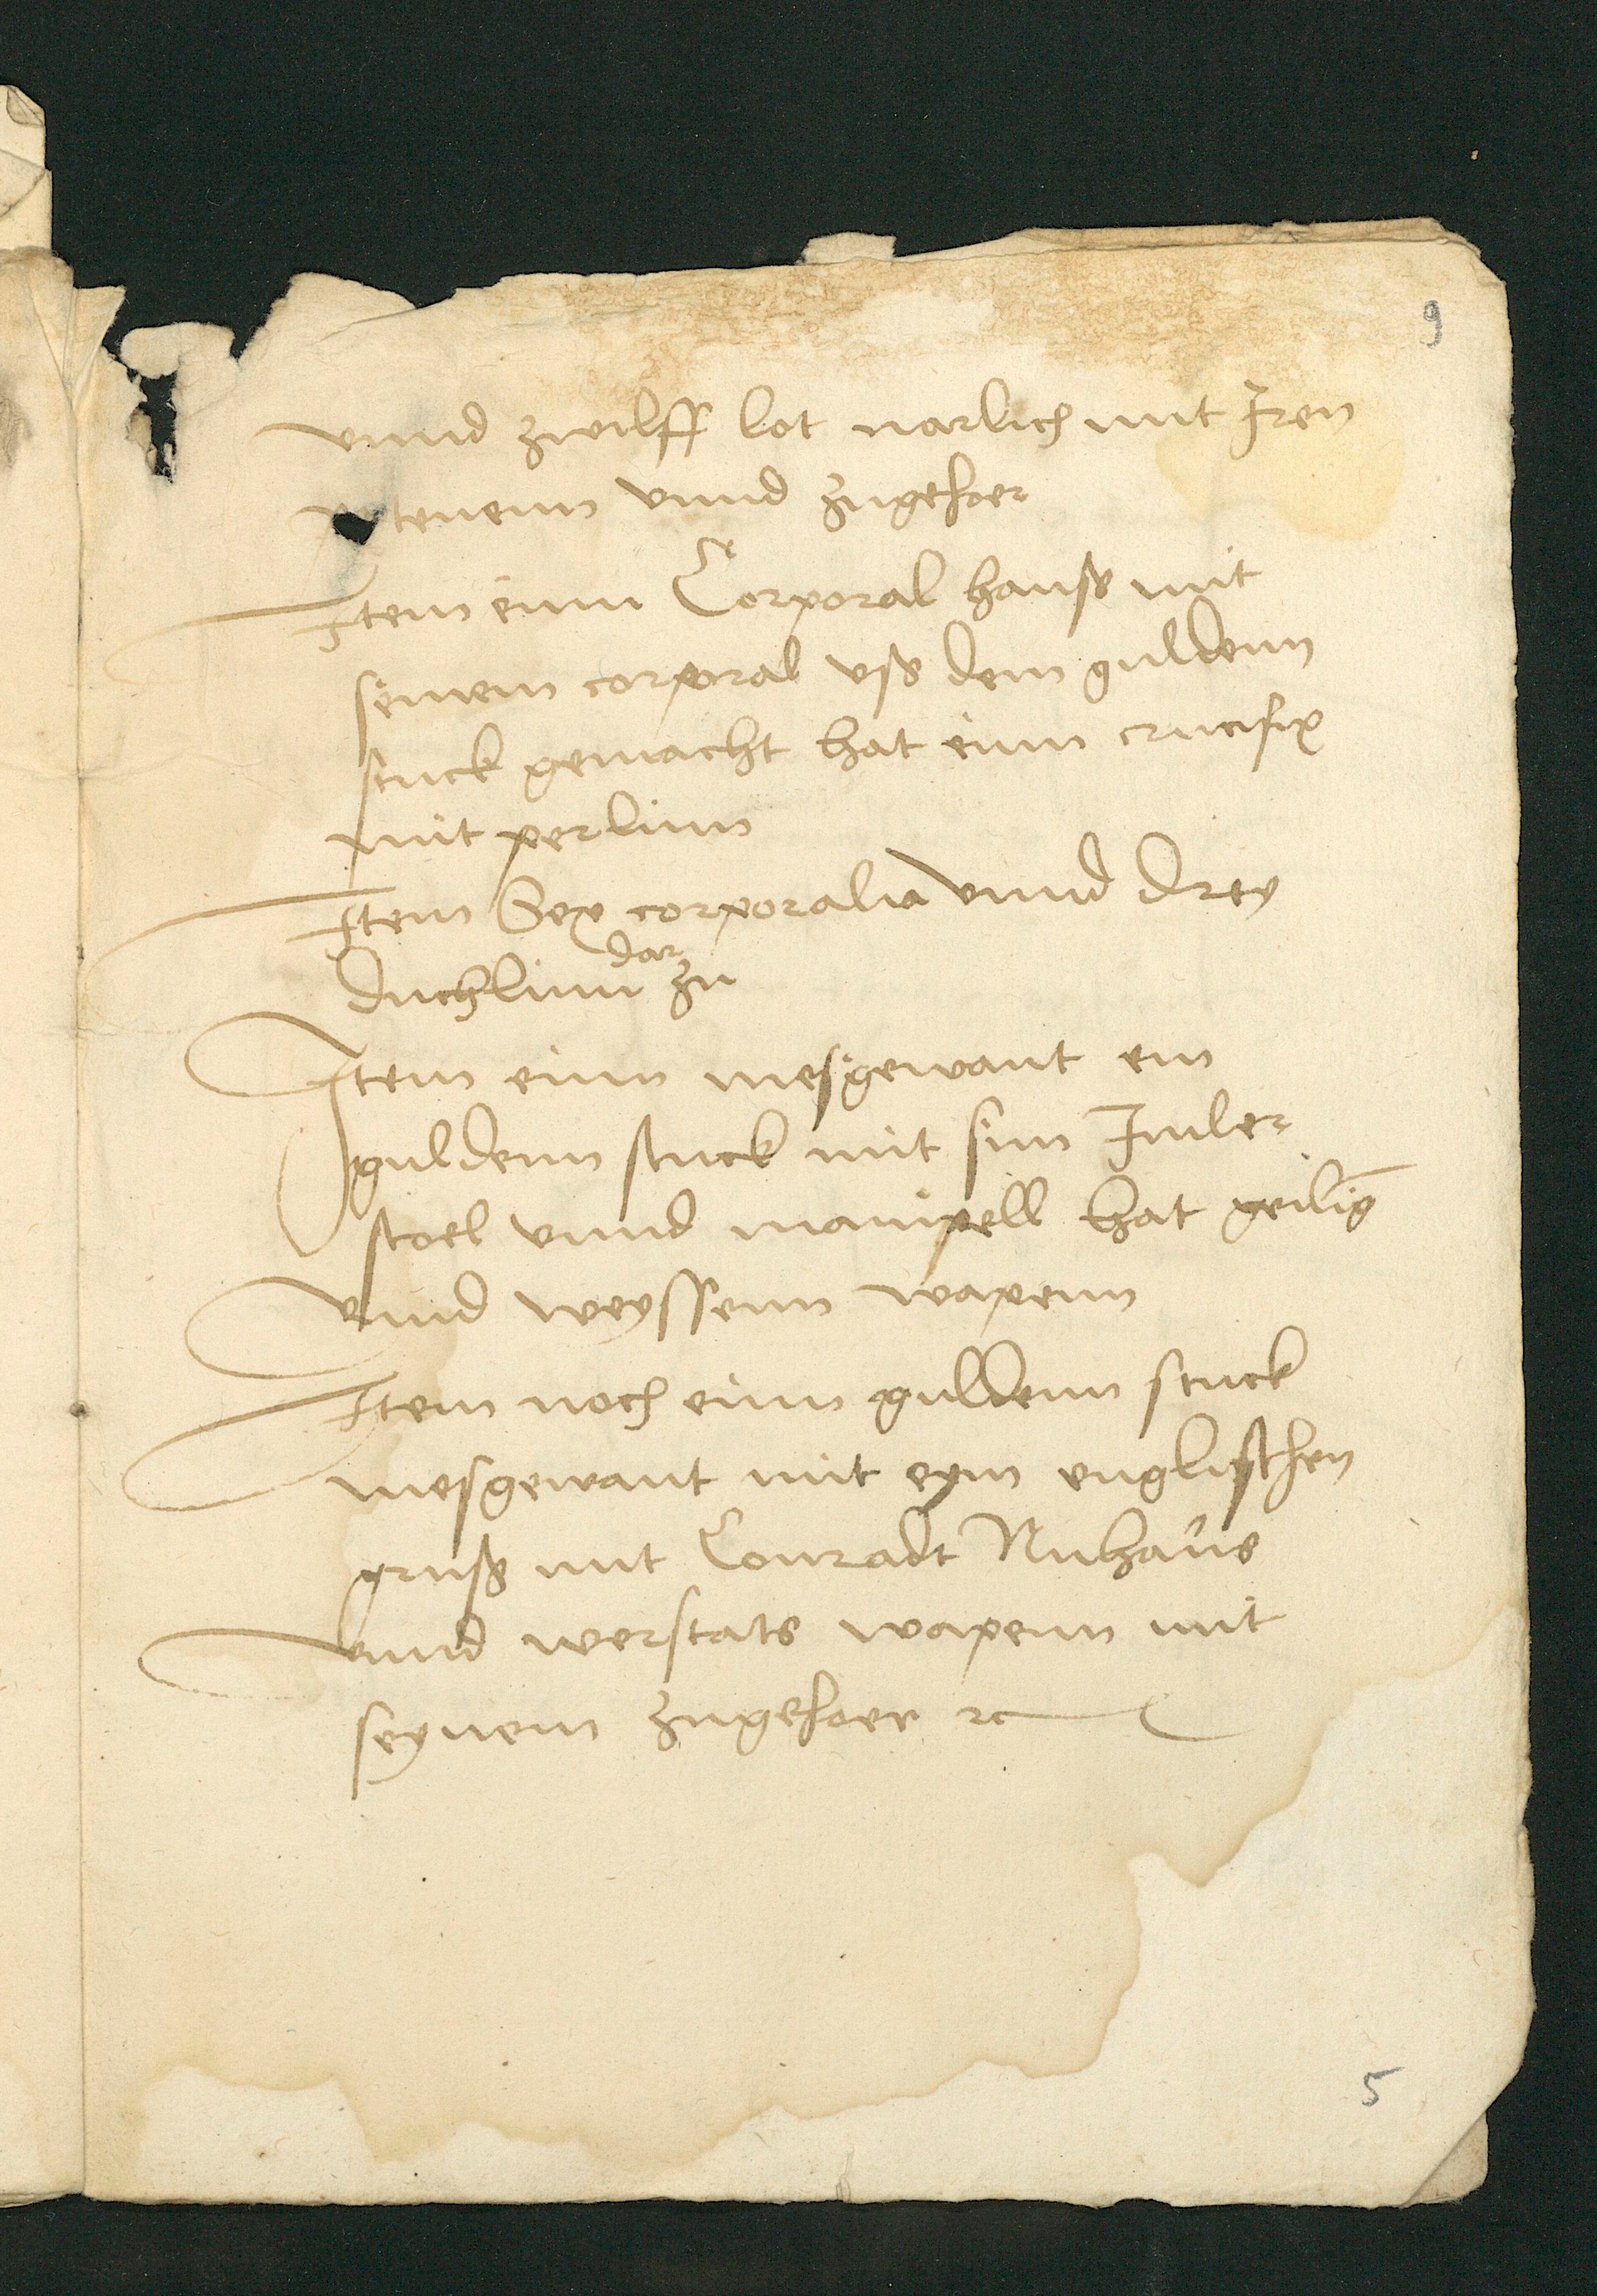 9
vnnd zwelff lot narlich mit Iren
patenenn vnnd zugehoer
Item einn Corporal hauß mit
sinnem corporal vß dem guldenn
stuck gemacht hat einn crucifix
mit perlinn
Item Sex corporalia vnnd drey
duchlinn dar zu
Item einn mesgewant ein
guldenn stuck mit sinn
stoel vnnd manipell hat
vnnd weyssenn wapenn
Item noch einn guldenn stuck
mesgewant mit eym englischen
gruß mit Conradt Nuhaus
vnnd werstats wapenn mit
seynem zugehoer ꝛc
5